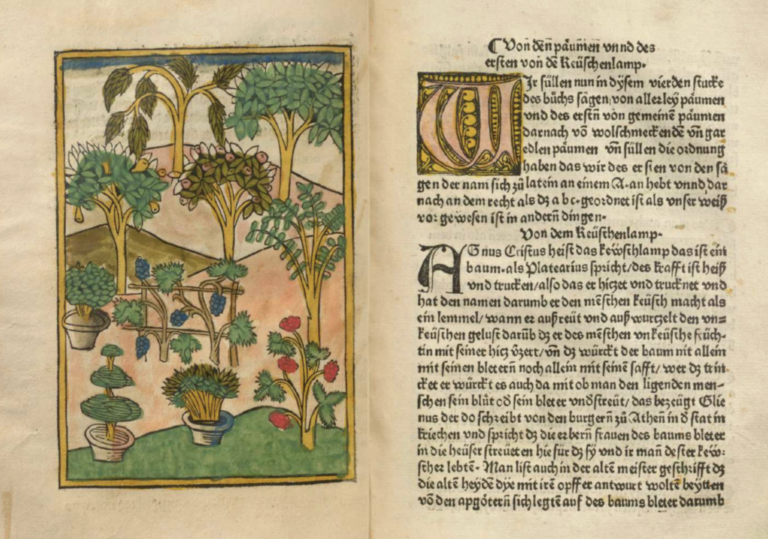 ☾Von deñ paümen vnnd des
ersten voñ dē Reüschenlamp.
WIr süllen nun in dysem vierden stucke
des bůchs sagen, von allerley paümen
vnd des ersñ von gemeinē paümen
darnach vō wolschmeckendē vñ gar
edlen paümen vñ süllen die ordnung
haben das wir des ersten von den sa
gen der nam sich zů latein an einem A. an hebt vnnd dar
nach an dem recht als dz a bc. geordnet ist als vnser weiß
vor gewesen ist in anderñ dingen.
Von dem Keüschenlamp.
AGnus Cristus heist das kewschlamp das ist ein
baum. als Platearius spricht/des krafft ist heiß
vnd trucken/also das er hiczet vnd trucknet vnd
hat den namen darumb er den mēschen keüsch macht als
ein lemmel/wann er auß reüt vnd auß wurczelt den vn⸗
keüschen gelust darüb dz er des mēschen vnkeüsche früch⸗
tin mit seiner hicz vzert/vñ dz würckt der baum nit allein
mit seinen bletern noch allein mit seinē safft/wer dz trin
cket er würckt es auch da mit ob man den ligenden men⸗
schen sein blüt od sein bleter vndstreüt/das bezeügt Glie
nus der do schreibt von den burgerñ zů Athen in d stat in
kriechen vnd spricht dz die erberñ frauen des baums bleter
in die heüser streüeten hie für dz sy vnd ir man dester kew⸗
scher lebtē. Man list auch in der altē meister geschrifft dz
die alten heydē dye mit irē opffer antwurt woltē beytten
vō den apgöterñ sich legtē auf des baums bleter darumb